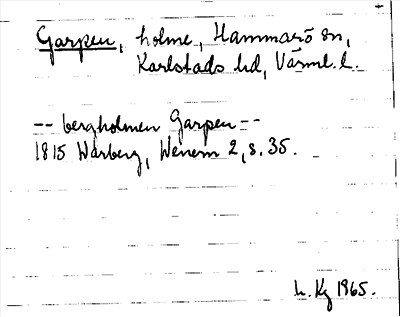 Garpen, holme, Hammarö sn,
Karlstads hd, Värml. l.
-- bergholmen Garpen --
1815 Warberg, Wenern 2, s. 35.
h. Kg 1965.